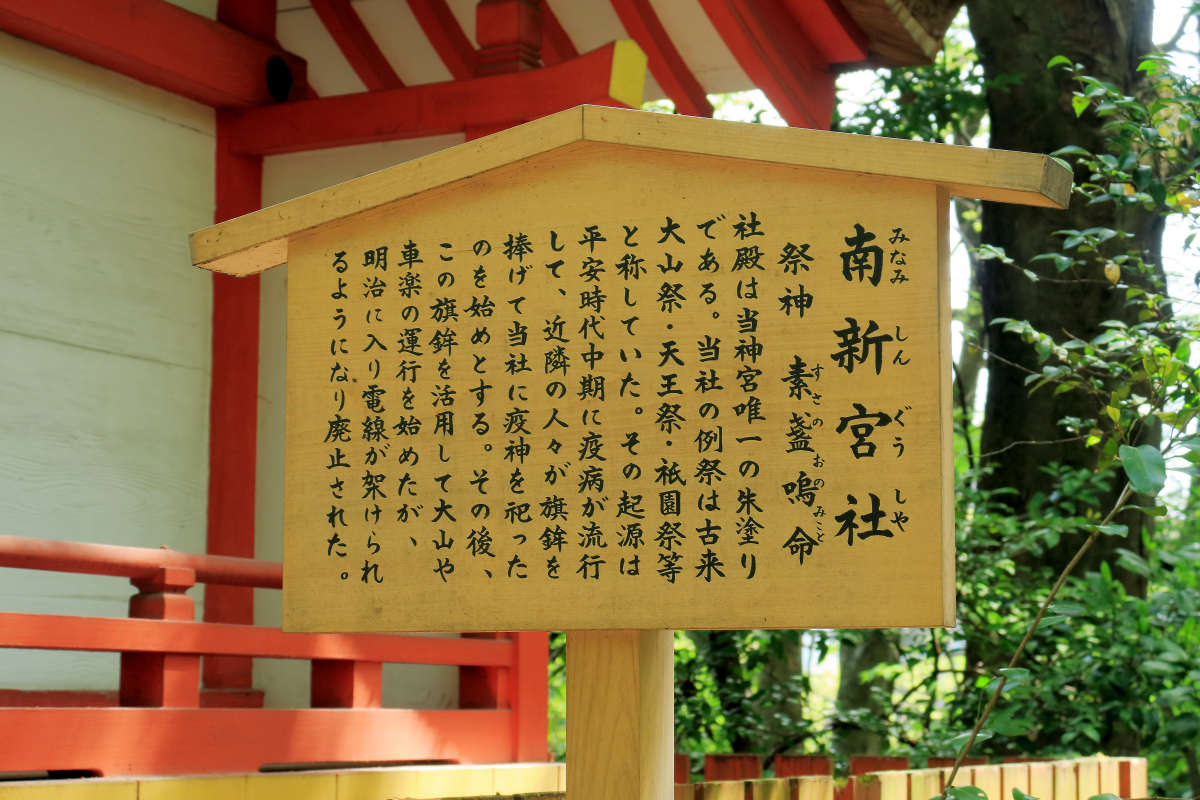 南新宮社
みなみ しん ぐう しや
祭神 素盞嗚命
すさの おの みこと
社殿は当神宮唯一の朱塗り
である。当社の例祭は古来
大山祭・天王祭・祇園祭等
と称していた。その起源は
平安時代中期に疫病が流行
して、近隣の人々が旗鉾を
捧げて当社に疫神を祀った
のを始めとする。その後、
この旗鉾を活用して大山や
車楽の運行を始めたが、
明治に入り電線が架けられ
るようになり廃止された。